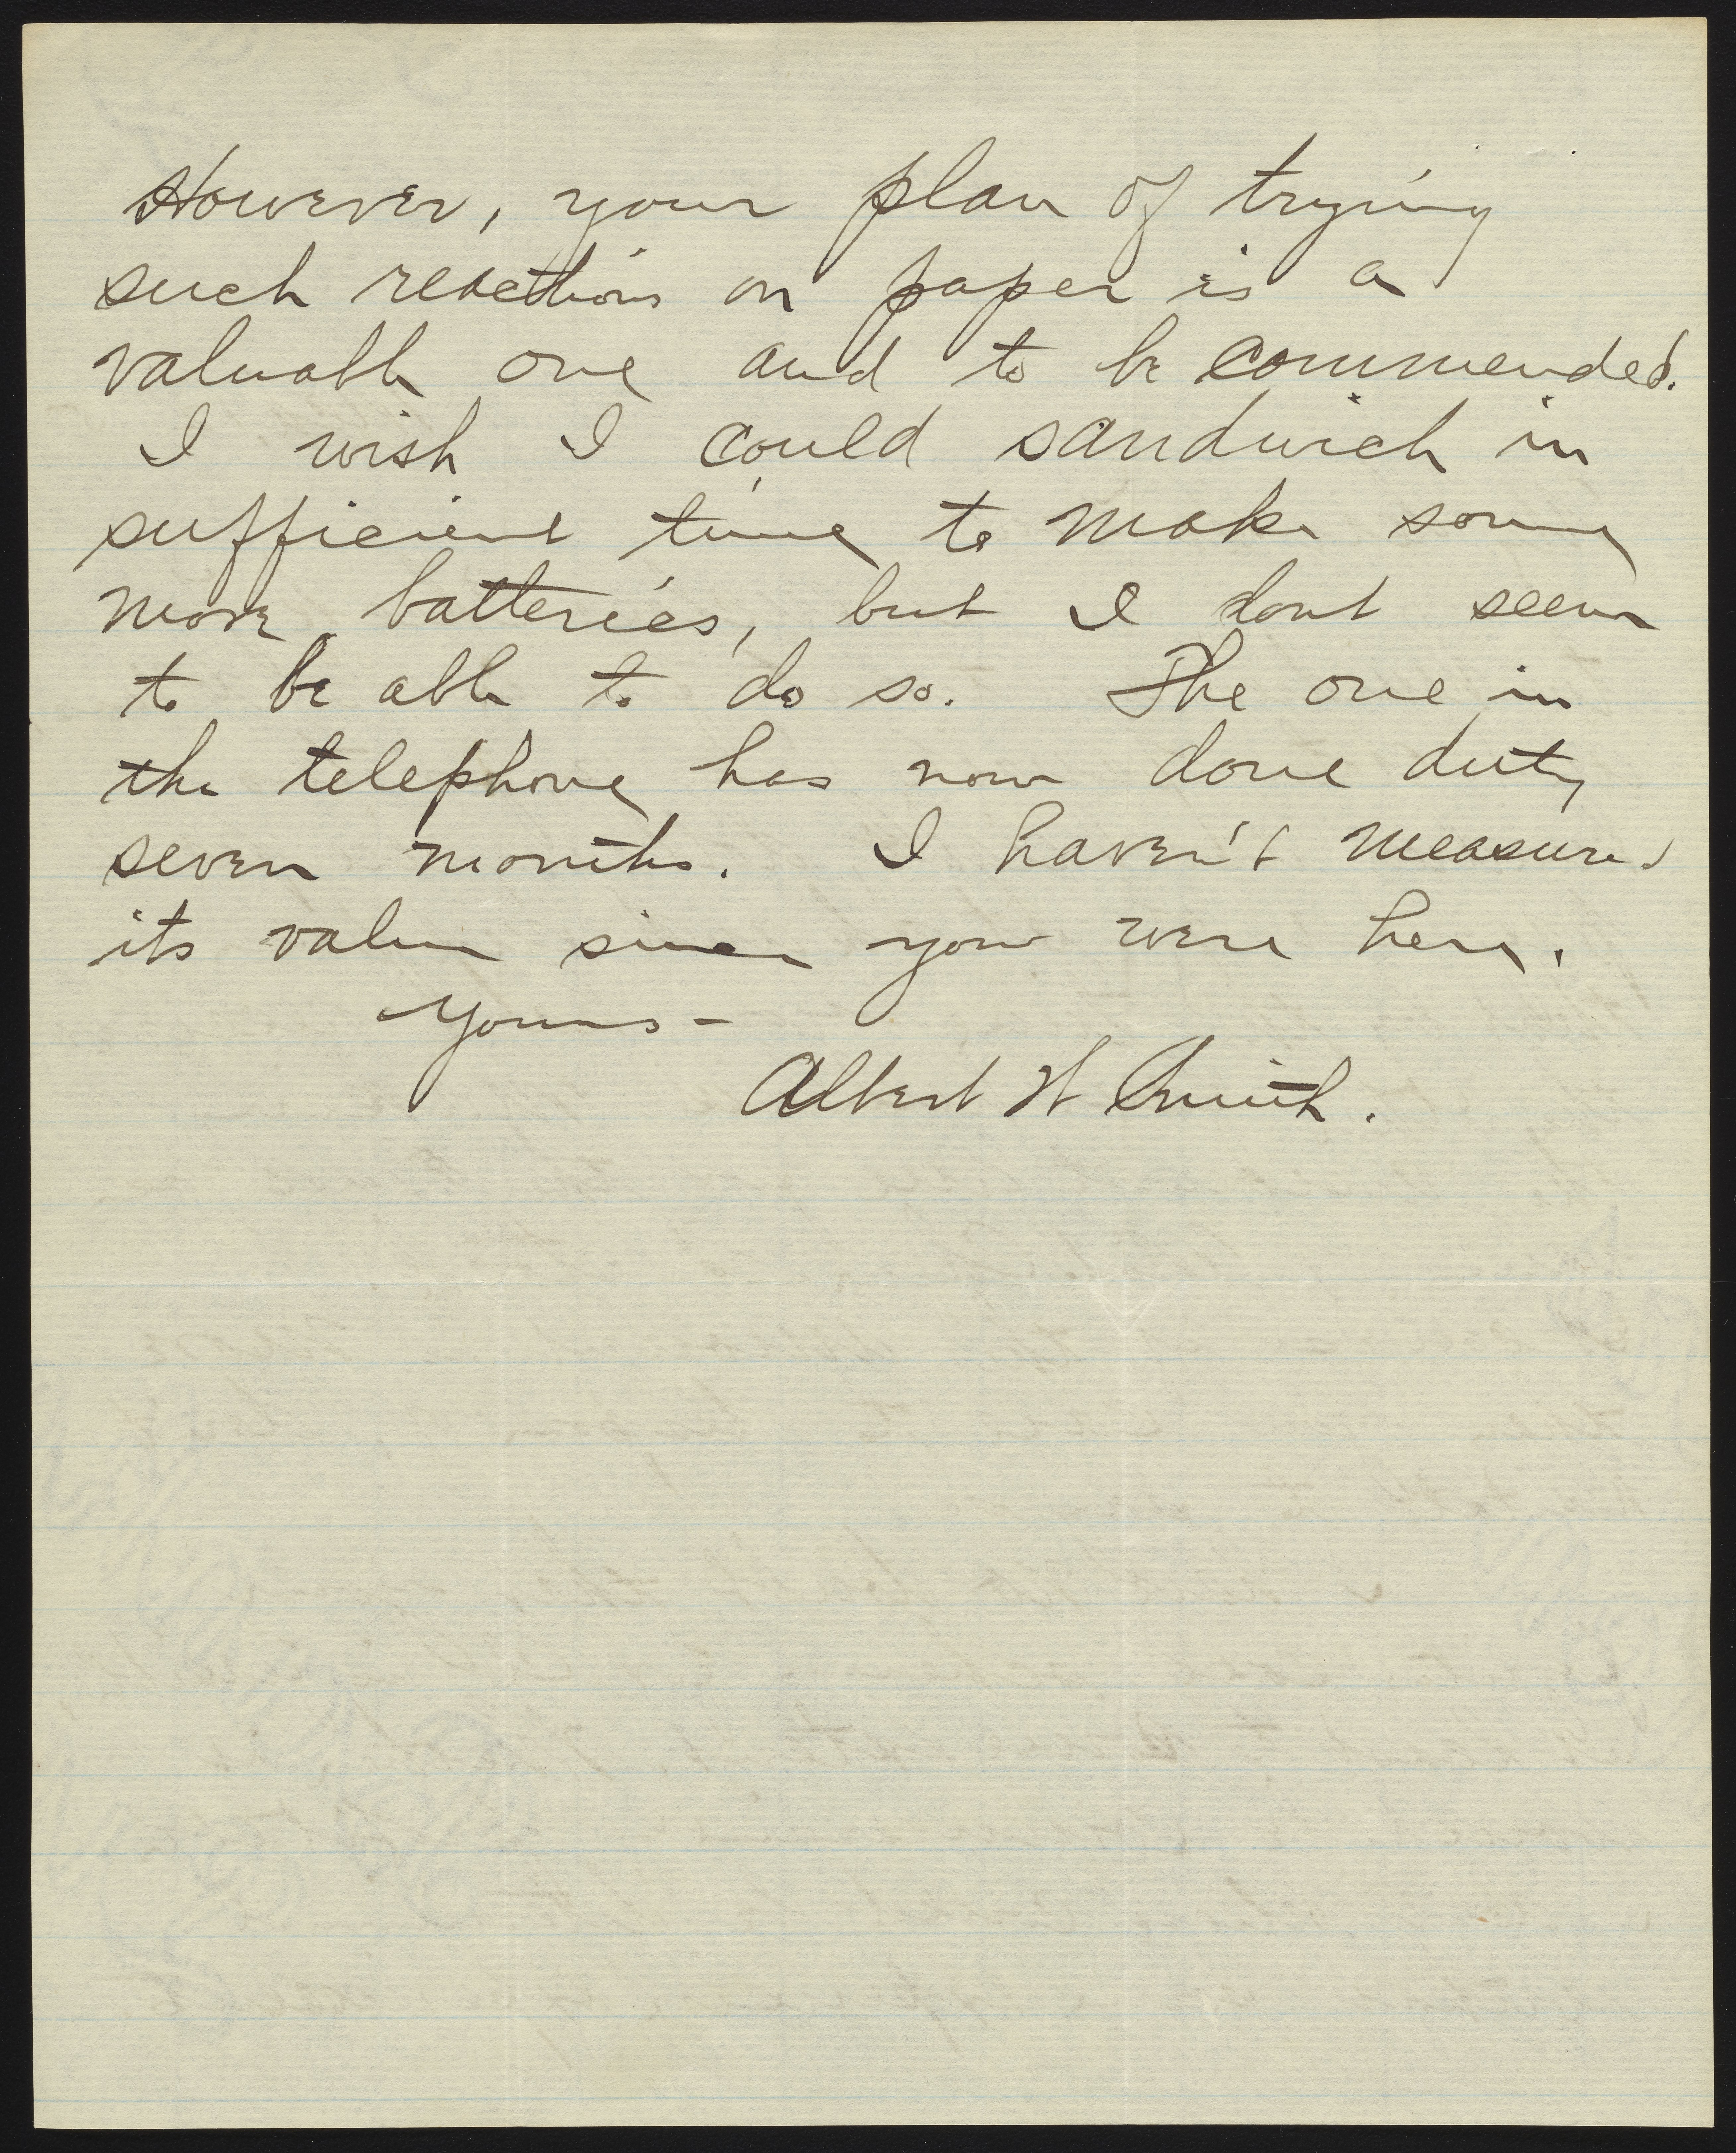 However, your plan of trying
such reactions on paper is a
valuable one and to be commended.
I wish I could sandwich in
sufficient time to make some
more batteries, but I dont seem
to be able to do so. The one in
the telephone has now done duty
seven months. I haven't measured
its value since you were here.
Yours-
Albert W Smith.